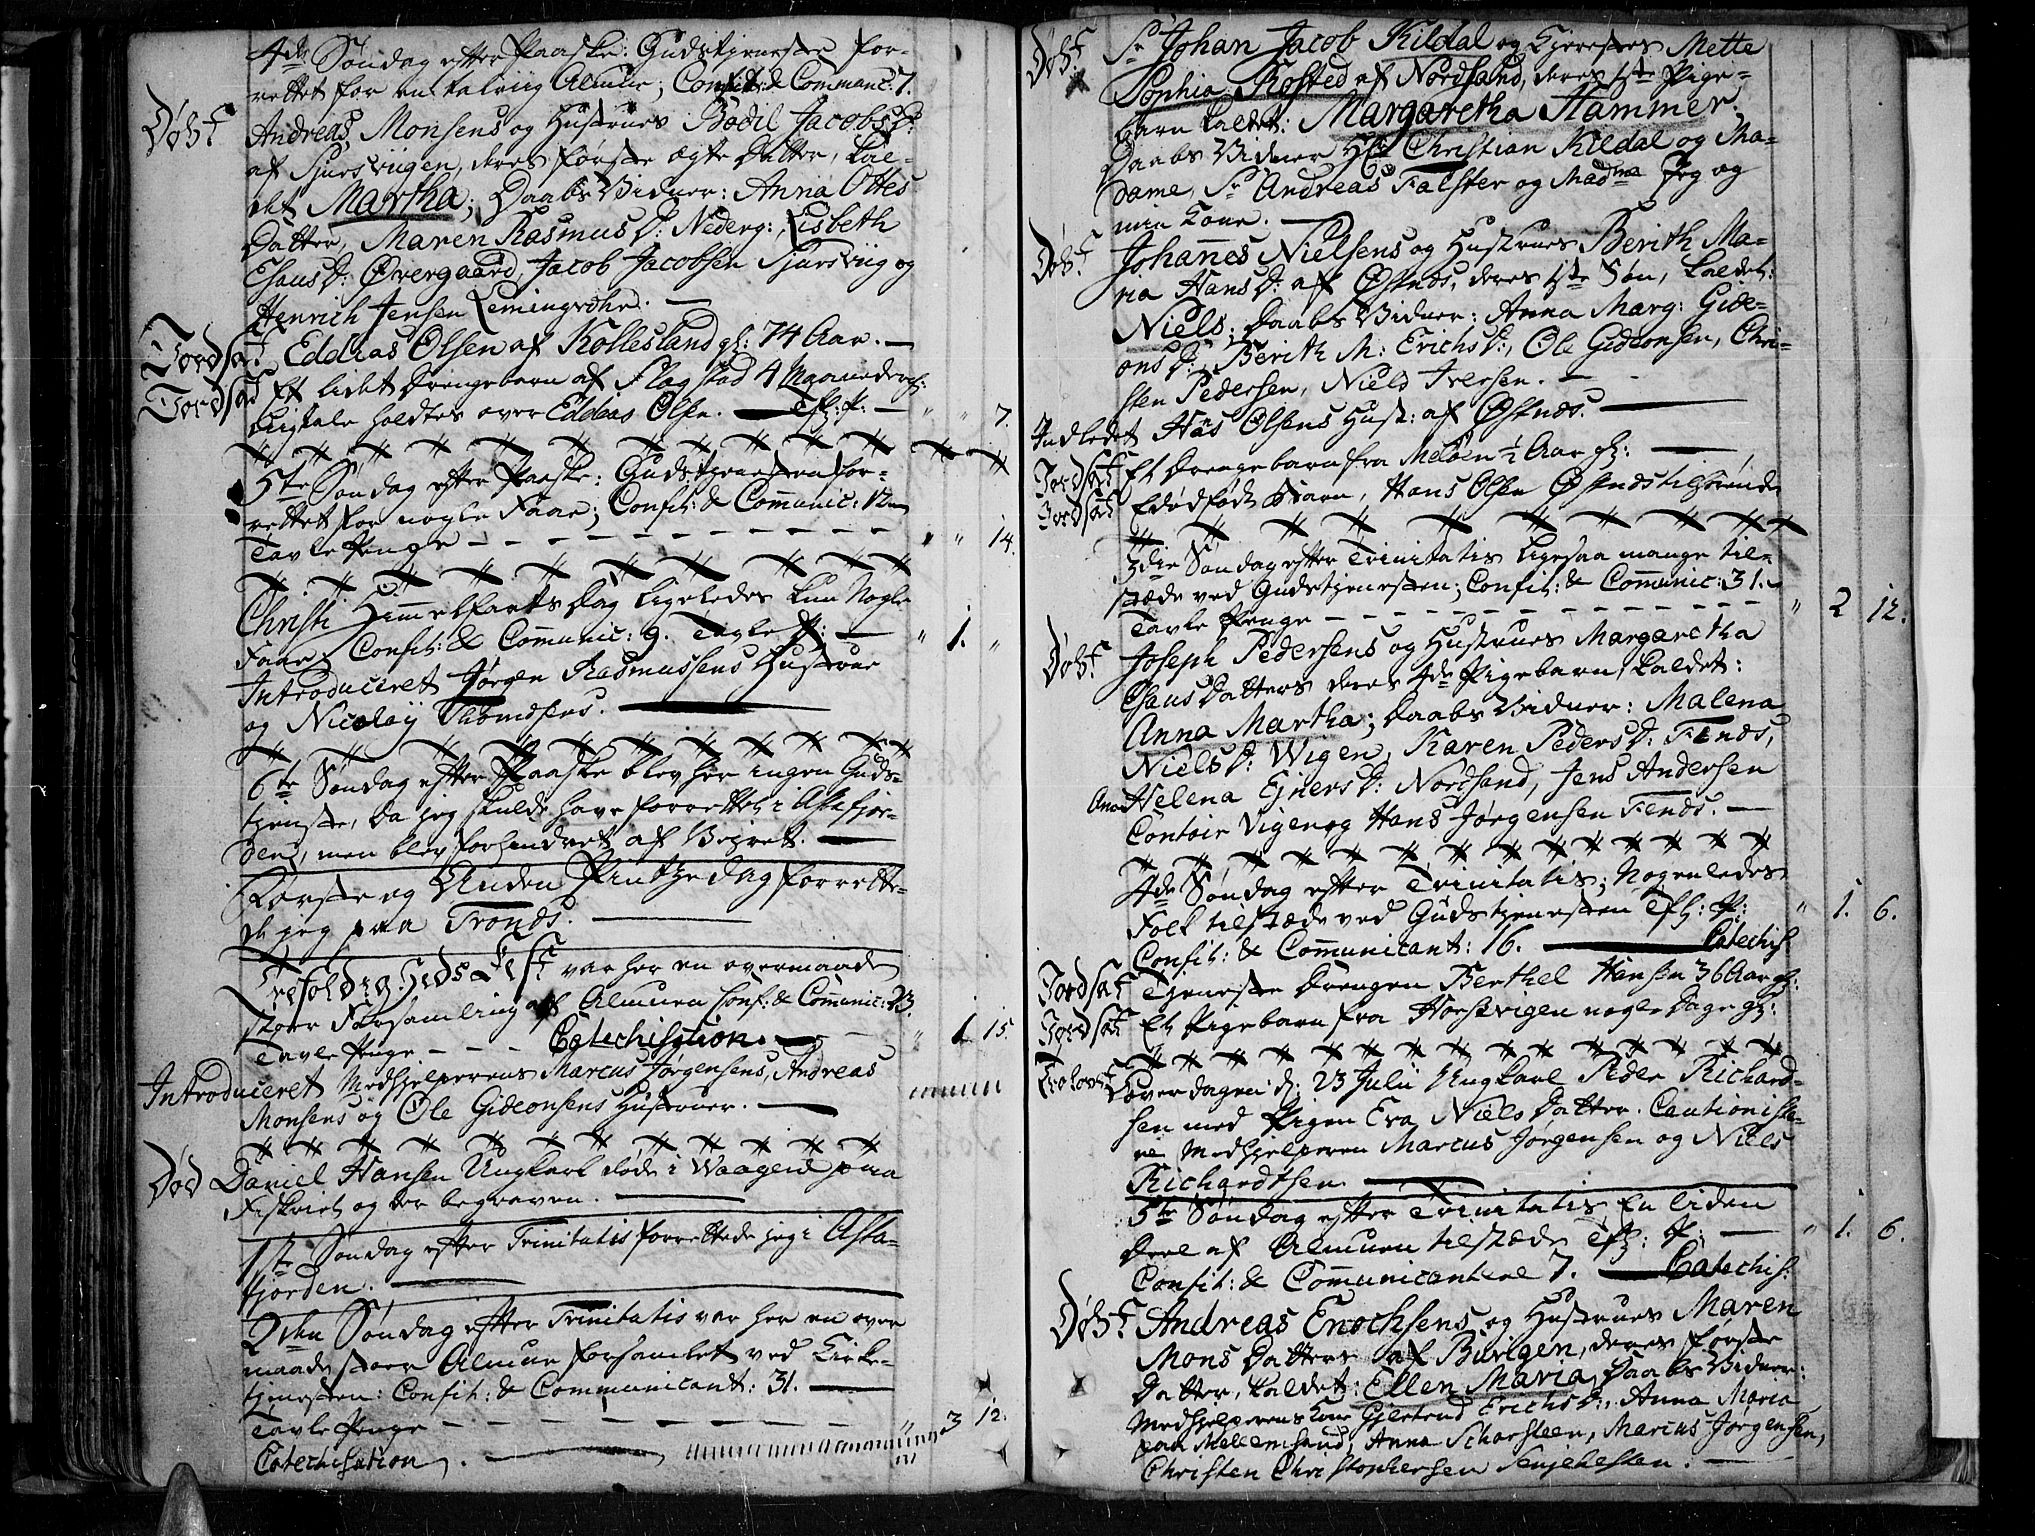 4de Søndag efter Paaske: Gudstjenesten for-
rettet for en talriig Almue; Confit: & Communic: 7.
Døbt Andreas Monsens og Hustrues Bodil Jacobs D:
af Sjursviigen, deres første ægte Datter, kal-
det Martha; Daabs Vidner: Anna Ottes
Datter, Maren Rasmus D: Nederg:, Lisbeth
Esaus D: Øvergaard, Jacob Jacobsen Sjursviig og
Henrich Jensen
Jordsat Eddias Olsen af Kollesland gl: 74 Aar. —
Jordsat Et lidet Drengebarn af Slagstad 4 Maaneder gl:
Liigtale holdtes over Eddias Olsen. — Tfl: P: — " " 7.
5te Søndag efter Paaske: Gudstjenesten for-
rettet for nogle Faae; Confit: & Communic:
Tavle Penge - - - " " 14.
Christi Himmelfarts Dag ligeledes kun Nogle
Faae; Confit: & Communic: 9. Tavle P: — " 1. "
Introduceret Jørgen Rasmussens Hustrue
og Nicolay Thomæsens. —
6te Søndag efter Paaske blev her ingen Guds-
tjeneste, da jeg skulde have forrettet i Astefjor-
den, men blev forhindret af Vejret. —
Første og Anden Pintzedag forrette-
de jeg paa Tronds. —
Trefoldigheds Fest var her en overmaade
stoer Forsamling af Almuen Conf: & Communic: 23.
Tavle Penge - - - Catechisation. — " 1 15.
Introduceret Medhjelperens Marcus Jørgensens, Andreas
Monsens og Ole Gideonsens Hustruer. —
Død Daniel Hansen Ungkarl døde i Waagen paa
Fiskeriet og der begraven. —
1ste Søndag efter Trinitatis forrettede jeg i Asta-
fjorden. —
2den Søndag efter Trinitatis var her en over
maade stoer Almue forsamlet ved Kirke-
tjenesten: Confit: & Communicant: 31. —
Tavle Penge - - - " 3 12.
Catechisation. —
Døbt Sr Johan Jacob Kildal og Kjerestes Mette
Sophia Rosted af Nordsand, deres 1ste Pige-
barn kaldet: Margaretha Hammer.
Daabs Vidner Hr Christian Kildal og Ma-
dame, Sr Andreas Falster og Madme Jeg og
min Kone. —
Døbt Johannes Nielsens og Hustrues Berith Ma-
ria Hans D: af Østnes, deres 1ste Søn, kaldet:
Niels; Daabs Vidner: Anna Marg: Gide-
ons D:, Berith M: Erichs D:, Ole Gideonsen, Chri-
sten Pedersen, Niels Iversen. —
Indledet Hans Olsens Hust: af Østnes. —
Jordsat Et Drengebarn fra Meløen ½ Aar gl: —
Jordsat Et dødfødt Barn, Hans Olsen Østnes tilhørende
3die Søndag efter Trinitatis ligesaa mange til-
stæde ved Gudstjenesten; Confit: & Communic: 31.
Tavle Penge - - - " 2 12.
Døbt Joseph Pedersens og Hustrues Margaretha
Esaus Datters deres 4de Pigebarn, kaldet:
Anna Martha; Daabs Vidner: Malena
Niels D: Wigen, Karen Peders D: Fends,
Ane Helena Ejners D: Nordsand, Jens Andersen
Contoir Vigen og Hans Jørgensen Fends. —
4de Søndag efter Trinitatis; Nogenledes
Folk tilstæde ved Gudstjenesten Tfl: P: " 1. 6.
Confit: & Communicant: 16. — Catechis:
Jordsat Tjeneste Drengen Berthel Hansen 36 Aar gl:
Jordsat Et Pigebarn fra Horsevigen nogle Dage gl:
Trolovet Løverdagen d: 23 Julii Ungkarl Peder Richard-
sen med Pigen Eva Niels Datter. Cautioniste-
re Medhjelperen Marcus Jørgensen og Niels
Richardtsen —
5te Søndag efter Trinitatis En liden
Deel af Almuen tilstæde Tfl: P: — " 1. 6.
Confit: & Communicantere 7. — Catechis:
Døbt Andreas Enochsens og Hustrues Maren
Mons Datters af Burigen, deres første
Datter, kaldet: Ellen Maria, Daabs Vidner:
Medhjelperens Kone Gjertrud Erichs D:, Anna Maria
paa Mellemsand, Anna Scharsteen, Marcus Jørgensen,
Christen Christophersen Senjehesten. —